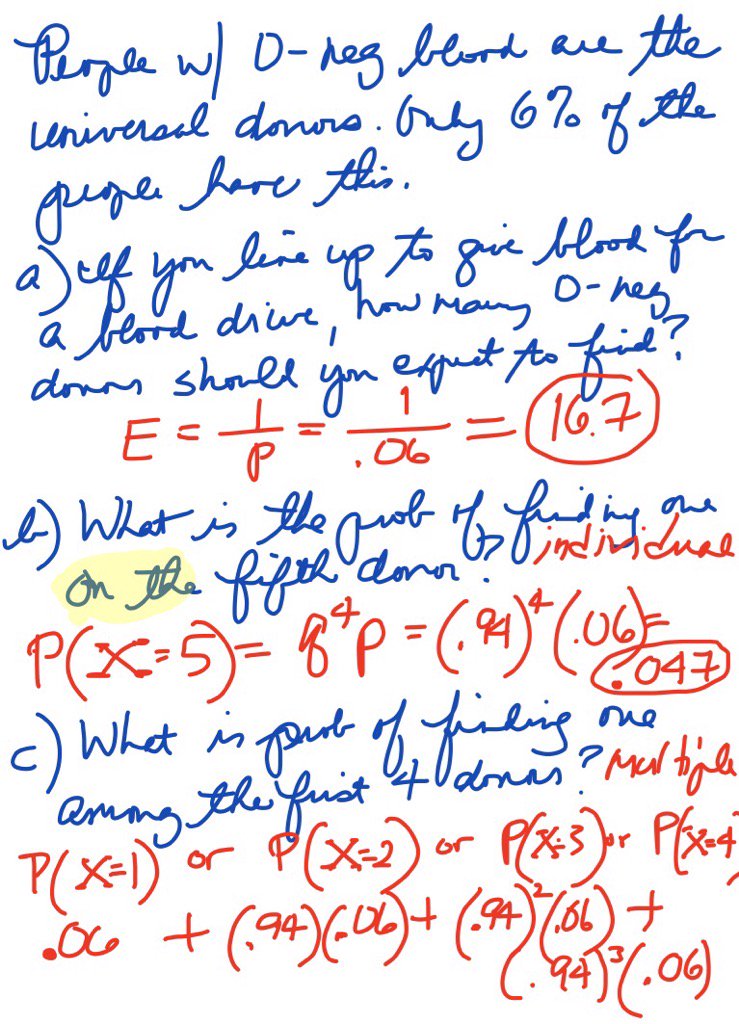 People w/ O-neg blood are the
universal donors. Only 6% of the
people have this.
a) If you line up to give blood for
a blood drive, how many O-neg
donors should you expect to find?
E = 1/p = 1/.06 = 16.7
b) What is the prob of finding one
individual
on the fifth donor?
P(X=5) = q⁴p = (.94)⁴(.06) =
.047
c) What is prob of finding one
among the first 4 donors? Multiple
P(X=1) or P(X=2) or P(X=3) or P(X=4)
.06 + (.94)(.06) + (.94)²(.06) +
(.94)³(.06)